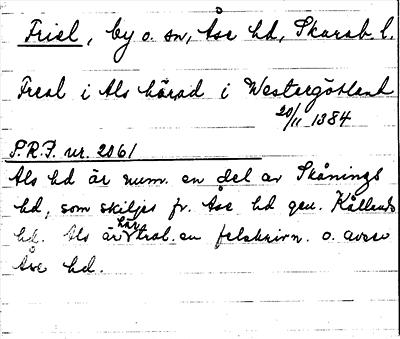 Friel, by o. sn, Åse hd, Skarab. l.
Freal i Als härad i Westergötland
20/11 1384
S.R.P. nr. 2061
Als hd är num. en del av Skånings
hd, som skiljes fr. Åse hd gen. Kållands
hd. Als är här trol. en felskrivn. o. avser
Åse hd.